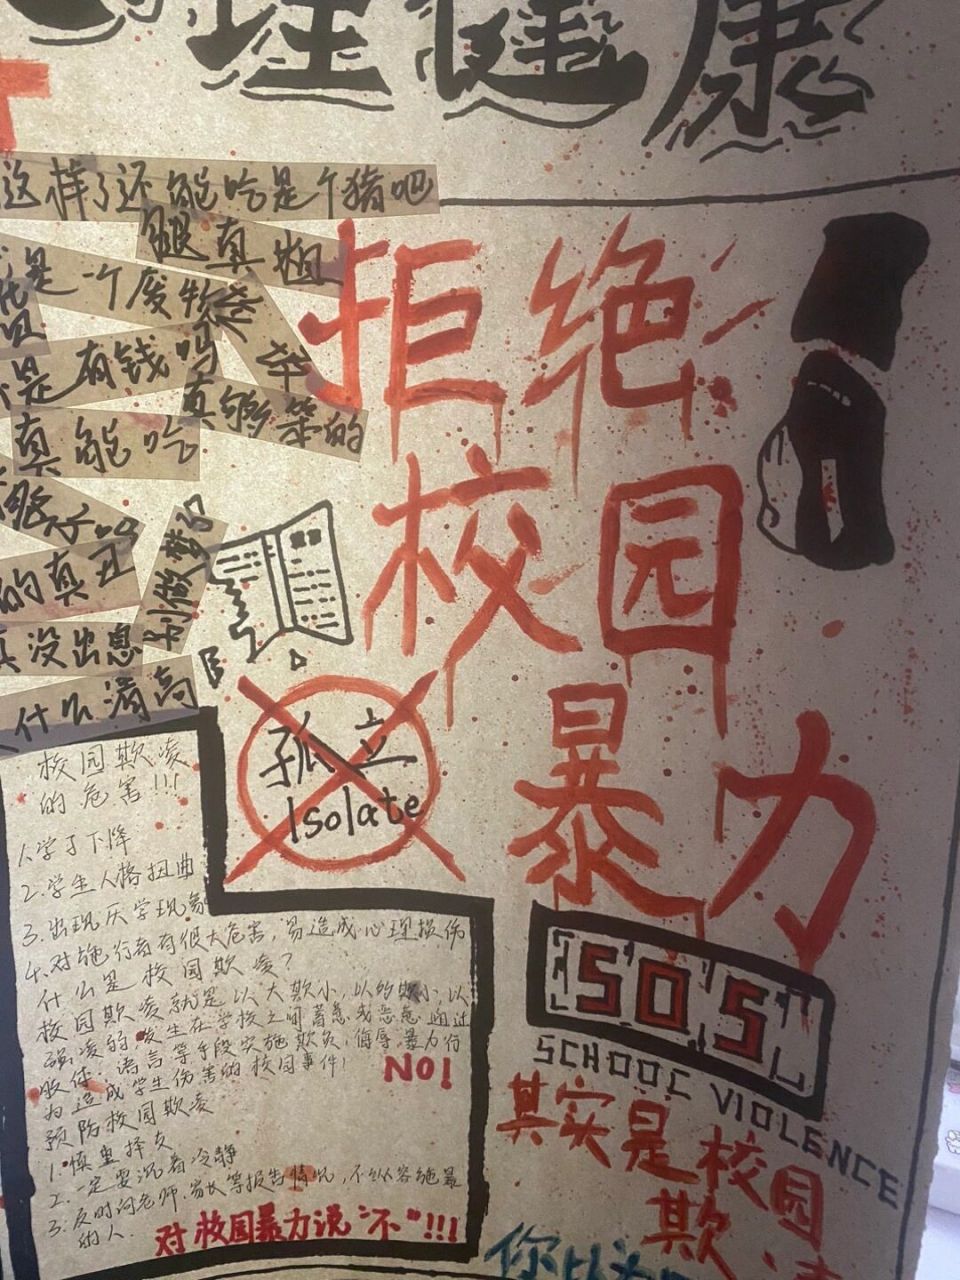 理健康
这样了还能吃是个猪吧
腿真粗
是一个废物
是有钱吗
真够笨的
真能吃
的真丑
别做梦了
真没出息
什么清高
拒绝
校园
暴力
孤立
Isolate
校园欺凌
的危害!!!
1.学习下降
2.学生人格扭曲
3.出现厌学现象
4.对施行者有很大危害,易造成心理损伤
什么是校园欺凌?
校园欺凌就是以大欺小,以的欺小,以
强凌的,发生在学校之间蓄意或恶意通过
肢体、语言等手段实施欺负,侮辱,暴力行
为造成学生伤害的校园事件!
NO!
预防校园欺凌
1.慎重择友
2.一定要沉着冷静
3.及时向老师、家长等报告情况,不纵容施暴
的人.
对校园暴力说"不"!!!
SOS
SCHOOL VIOLENCE
其实是校园
欺
你以为